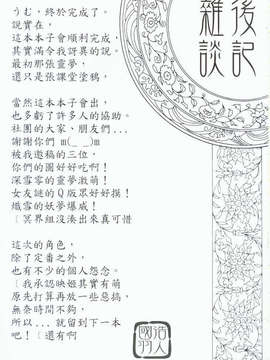 後記
雜談
うむ，終於完成了。
說實在，
這本本子會順利完成，
其實滿令我訝異的說。
最初那張靈夢，
還只是張課堂塗鴉，
當然這本本子會出，
也多虧了許多人的協助。
社團的大家，朋友們...
謝謝你們 m(_ _)m
被我邀稿的三位，
你們的圖好好吃啊！
深雪零的靈夢激萌！
女友謎的Q版眾好好摸！
熾雪的妖夢爆威！
〔冥界組沒湊出來真可惜
這次的角色，
除了定番之外，
也有不少的個人怨念。
〔我承認映姬其實有萌
原先打算再放一些惡搞，
無奈時間不夠，
所以... 就留到下一本
吧！〔還有啊